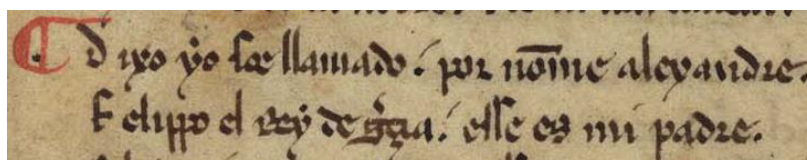 D ixo yo soe llamado. por nom̅e alexandre.
F elippo el Rey de g̃çia. esse es mi padre.